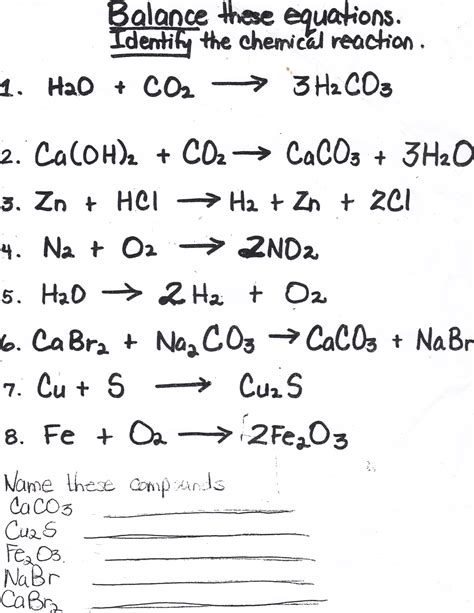 Balance these equations.
Identify the chemical reaction.
1. H2O + CO2 → 3H2CO3
2. Ca(OH)2 + CO2 → CaCO3 + 3H2O
3. Zn + HCl → H2 + Zn + 2Cl
4. N2 + O2 → 2NO2
5. H2O → 2H2 + O2
6. CaBr2 + Na2CO3 → CaCO3 + NaBr
7. Cu + S → Cu2S
8. Fe + O2 → 2Fe2O3
Name these compounds
CaCO3
Cu2S
Fe2O3.
NaBr
CaBr2